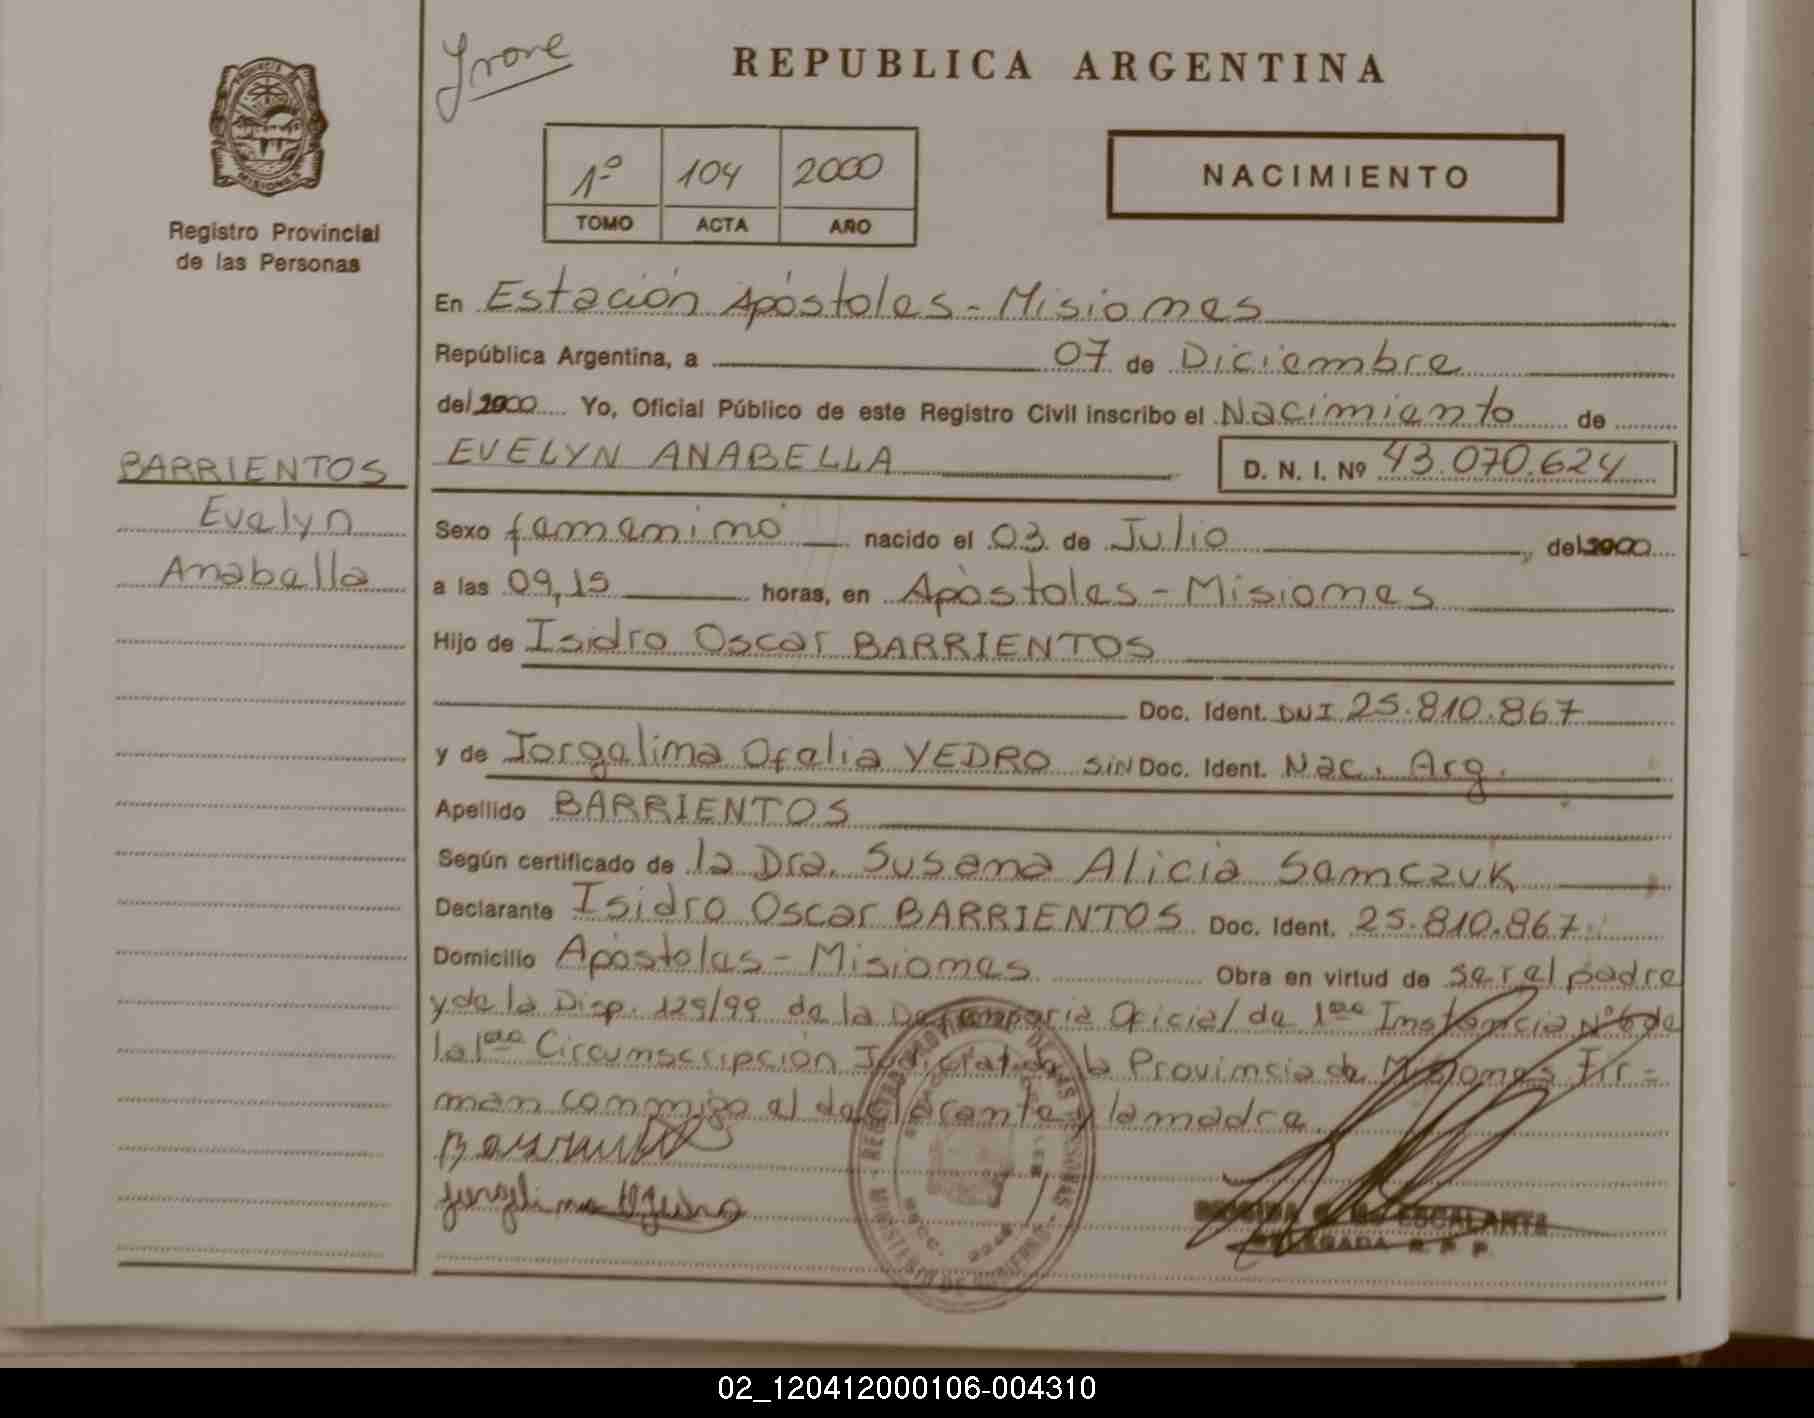 Yrone
REPUBLICA ARGENTINA
PROVINCIA DE
MISIONES
Registro Provincial
de las Personas
1º 104 2000
TOMO ACTA AÑO
NACIMIENTO
En Estación Apóstoles - Misiones
República Argentina, a 07 de Diciembre
del 2000 Yo, Oficial Público de este Registro Civil inscribo el Nacimiento de
BARRIENTOS
Evelyn
Anabella
EVELYN ANABELLA D. N. I. Nº 43.070.624
Sexo femenino nacido el 03 de Julio, del 2000
a las 09,15 horas, en Apóstoles - Misiones
Hijo de Isidro Oscar BARRIENTOS
Doc. Ident. DNI 25.810.867
y de Jorgelina Ofelia YEDRO SIN Doc. Ident. Nac. Arg.
Apellido BARRIENTOS
Según certificado de la Dra. Susana Alicia Samczuk
Declarante Isidro Oscar BARRIENTOS Doc. Ident. 25.810.867
Domicilio Apóstoles - Misiones Obra en virtud de ser el padre
y de la Disp. 129/99 de la Defensoria Oficial de 1era Instancia Nº 6 de
la 1era Circunscripción Judicial de la Provincia de Misiones Fir=
man conmigo el declarante y la madre.
ESCALANTE
DELEGADA R. P. P.
02_120412000106-004310